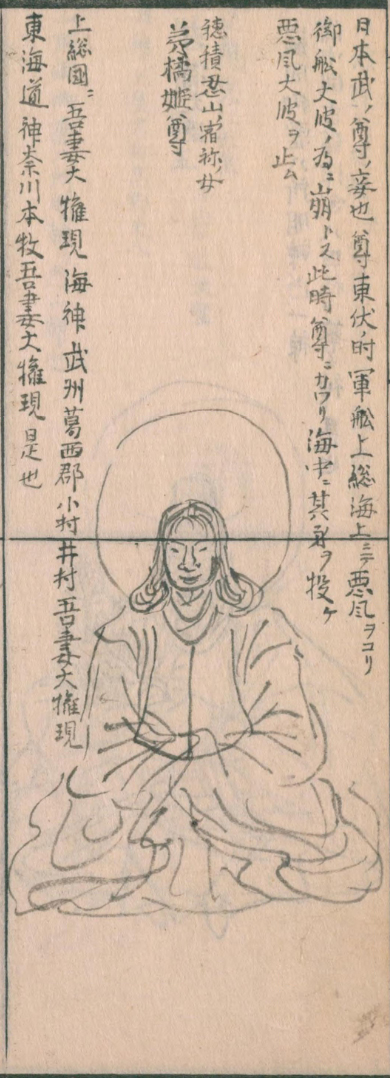 日本武ノ尊ノ妾也尊東伏ノ時軍舩上総海上ニテ悪風ヲコリ
御舩大波ノ為ニ崩トス此時尊ニカワリ海中ニ其身ヲ投ケ
悪風大波ヲ止ム
穂積忍山宿祢ノ女
弟橘姫尊
上総國ニ吾妻大権現海神武州葛西郡小村井村吾妻大権現
東海道神奈川本牧吾妻大権現是也